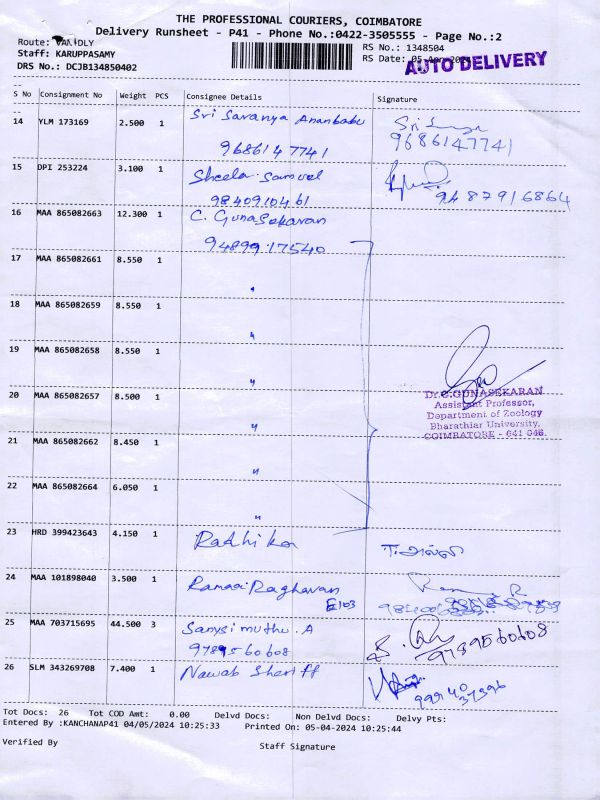 THE PROFESSIONAL COURIERS, COIMBATORE
Delivery Runsheet - P41 - Phone No.:0422-3505555 - Page No.:2
Route: VAKIDLY
RS No.: 1348504
Staff: KARUPPASAMY
RS Date: 05-Apr-2024
AUTO DELIVERY
DRS No.: DCJB134850402
S No Consignment No Weight PCS Consignee Details Signature
14 YLM 173169 2.500 1 Sri Saranya Ananbabu
9686147741 9686147741
15 DPI 253224 3.100 1 Sheela Samuel
9840910461 9487916864
16 MAA 865082663 12.300 1 C. Gunasekaran
94899 17540
17 MAA 865082661 8.550 1 "
18 MAA 865082659 8.550 1 "
19 MAA 865082658 8.550 1 "
20 MAA 865082657 8.500 1 "
Dr.C.GUNASEKARAN
Assistant Professor,
Department of Zoology
Bharathiar University,
COIMBATORE - 641 046.
21 MAA 865082662 8.450 1 "
22 MAA 865082664 6.050 1 "
23 HRD 399423643 4.150 1 Radhika
24 MAA 101898040 3.500 1 Ramaa Raghavan
E103
25 MAA 703715695 44.500 3 Sanysimuthu. A
9789560608 9789560608
26 SLM 343269708 7.400 1 Nawab Sheriff
99940
37396
Tot Docs: 26 Tot COD Amt: 0.00 Delvd Docs: Non Delvd Docs: Delvy Pts:
Entered By :KANCHANAP41 04/05/2024 10:25:33 Printed On: 05-04-2024 10:25:44
Verified By Staff Signature